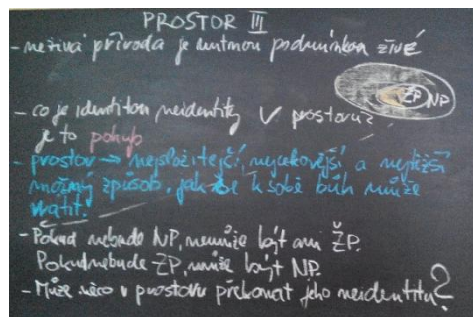 PROSTOR III
- neživá příroda je nutnou podmínkou živé
ŽP NP
- co je identitou neidentity v prostoru?
je to pohyb
- prostor → nejsložitější, nejcelovější a nejtěžší
možný způsob, jak se k sobě bůh může
vrátit.
- Pokud nebude NP, nemůže být ani ŽP.
Pokud nebude ŽP, může být NP.
- Může něco v prostoru překonat jeho neidentitu?